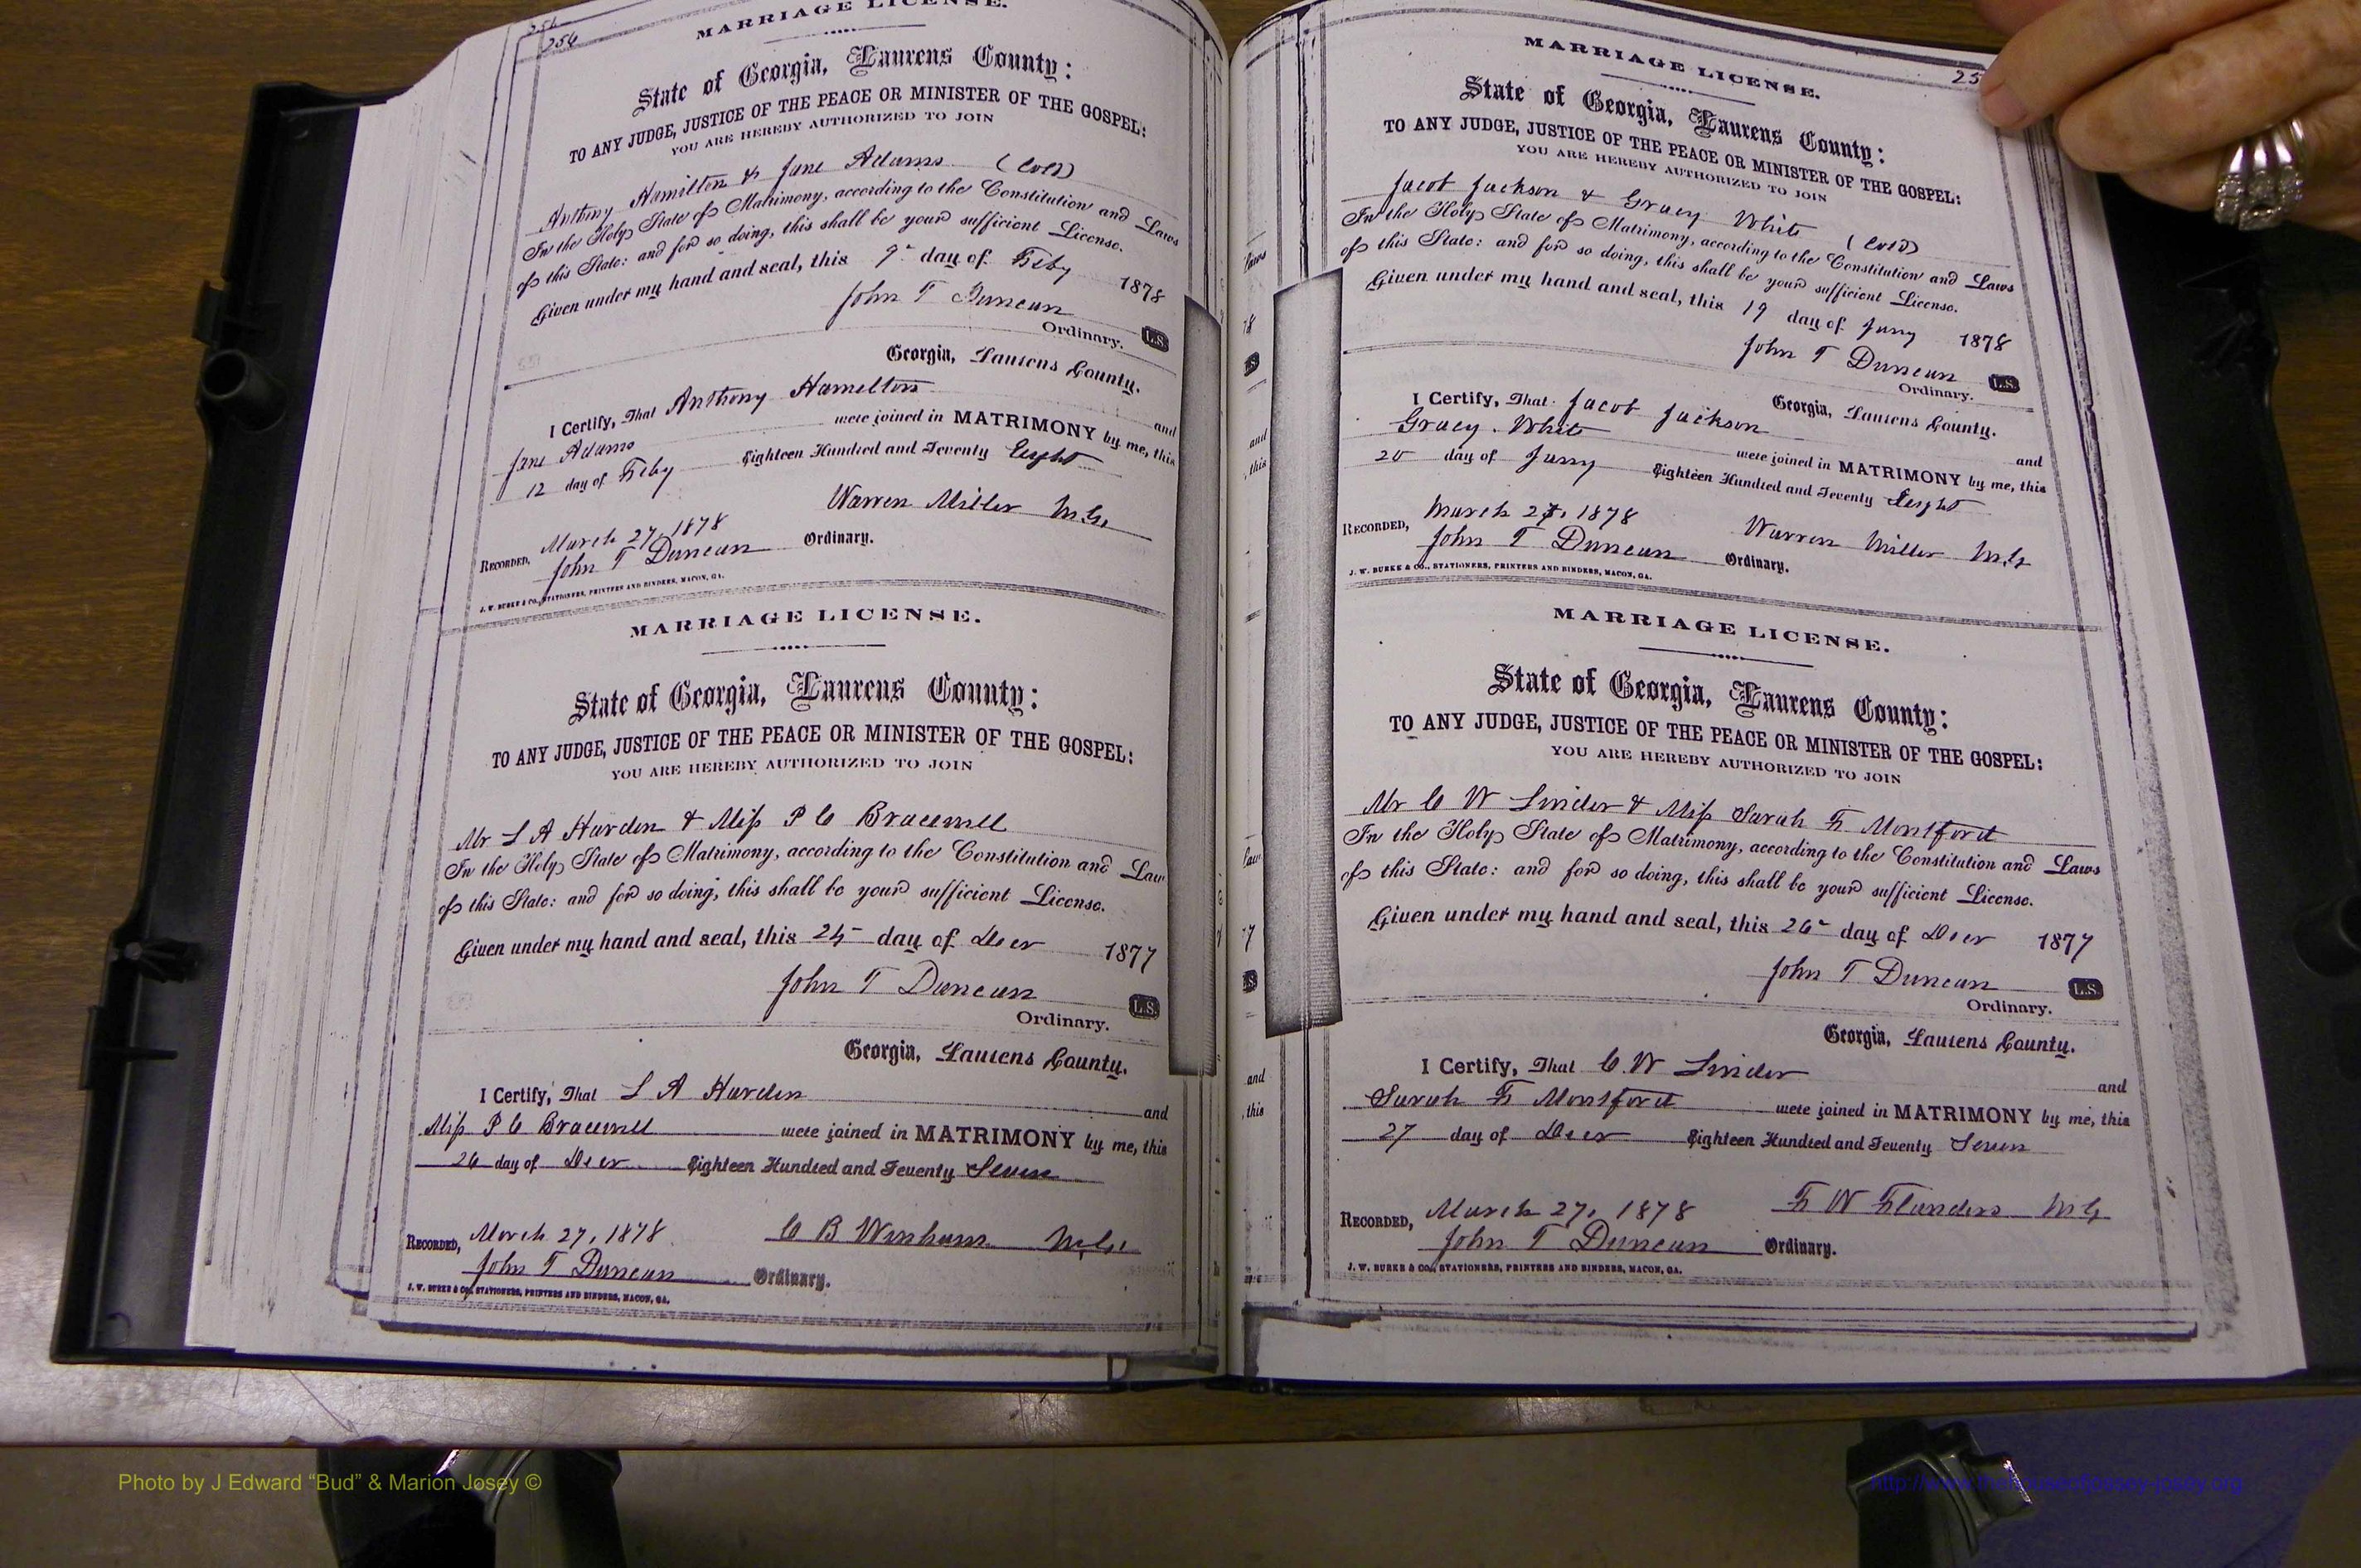 256
254
MARRIAGE LICENSE.
State of Georgia, Laurens County:
TO ANY JUDGE, JUSTICE OF THE PEACE OR MINISTER OF THE GOSPEL:
YOU ARE HEREBY AUTHORIZED TO JOIN
Anthony Hamilton & Jane Adams (Cold)
In the Holy State of Matrimony, according to the Constitution and Laws
of this State: and for so doing, this shall be your sufficient License.
Given under my hand and seal, this 9 day of Feby 1878
John T Duncan
Ordinary. L.S.
Georgia, Laurens County.
I Certify, That Anthony Hamilton and
Jane Adams were joined in MATRIMONY by me, this
12 day of Feby Eighteen Hundred and Seventy Eight
Warren Miller M.G.
RECORDED, March 27, 1878
John T Duncan Ordinary.
J. W. BURKE & CO., STATIONERS, PRINTERS AND BINDERS, MACON, GA.
MARRIAGE LICENSE.
State of Georgia, Laurens County:
TO ANY JUDGE, JUSTICE OF THE PEACE OR MINISTER OF THE GOSPEL:
YOU ARE HEREBY AUTHORIZED TO JOIN
Mr L A Harden & Miss P C Bracewell
In the Holy State of Matrimony, according to the Constitution and Law
of this State: and for so doing, this shall be your sufficient License.
Given under my hand and seal, this day of Decr 1877
John T Duncan
L.S.
Ordinary.
Georgia, Laurens County.
I Certify, That L A Harden and
Miss P C Bracewell were joined in MATRIMONY by me, this
26 day of Decr Eighteen Hundred and Seventy Seven
C B M.G.
RECORDED, March 27, 1878
John T Duncan Ordinary.
J. W. BURKE & CO., STATIONERS, PRINTERS AND BINDERS, MACON, GA.
25
MARRIAGE LICENSE.
State of Georgia, Laurens County:
TO ANY JUDGE, JUSTICE OF THE PEACE OR MINISTER OF THE GOSPEL:
YOU ARE HEREBY AUTHORIZED TO JOIN
Jacob Jackson & Gracy White (Cold)
In the Holy State of Matrimony, according to the Constitution and Laws
of this State: and for so doing, this shall be your sufficient License.
Given under my hand and seal, this 19 day of Jany 1878
John T Duncan
Ordinary. L.S.
Georgia, Laurens County.
I Certify, That Jacob Jackson and
Gracy White were joined in MATRIMONY by me, this
20 day of Jany Eighteen Hundred and Seventy Eight
Warren Miller M.G
RECORDED, March 27, 1878
John T Duncan Ordinary.
J. W. BURKE & CO., STATIONERS, PRINTERS AND BINDERS, MACON, GA.
MARRIAGE LICENSE.
State of Georgia, Laurens County:
TO ANY JUDGE, JUSTICE OF THE PEACE OR MINISTER OF THE GOSPEL:
YOU ARE HEREBY AUTHORIZED TO JOIN
Mr C W Linder & Miss Sarah F Montford
In the Holy State of Matrimony, according to the Constitution and Laws
of this State: and for so doing, this shall be your sufficient License.
Given under my hand and seal, this 26 day of Decr 1877
John T Duncan
L.S.
Ordinary.
Georgia, Laurens County.
I Certify, That C. W Linder and
Sarah F Montford were joined in MATRIMONY by me, this
27 day of Decr Eighteen Hundred and Seventy Seven
F W Flanders M G
RECORDED, March 27, 1878
John T Duncan Ordinary.
J. W. BURKE & CO., STATIONERS, PRINTERS AND BINDERS, MACON, GA.
Photo by J Edward “Bud” & Marion Josey ©
http://www.thehouseofjossey-josey.org